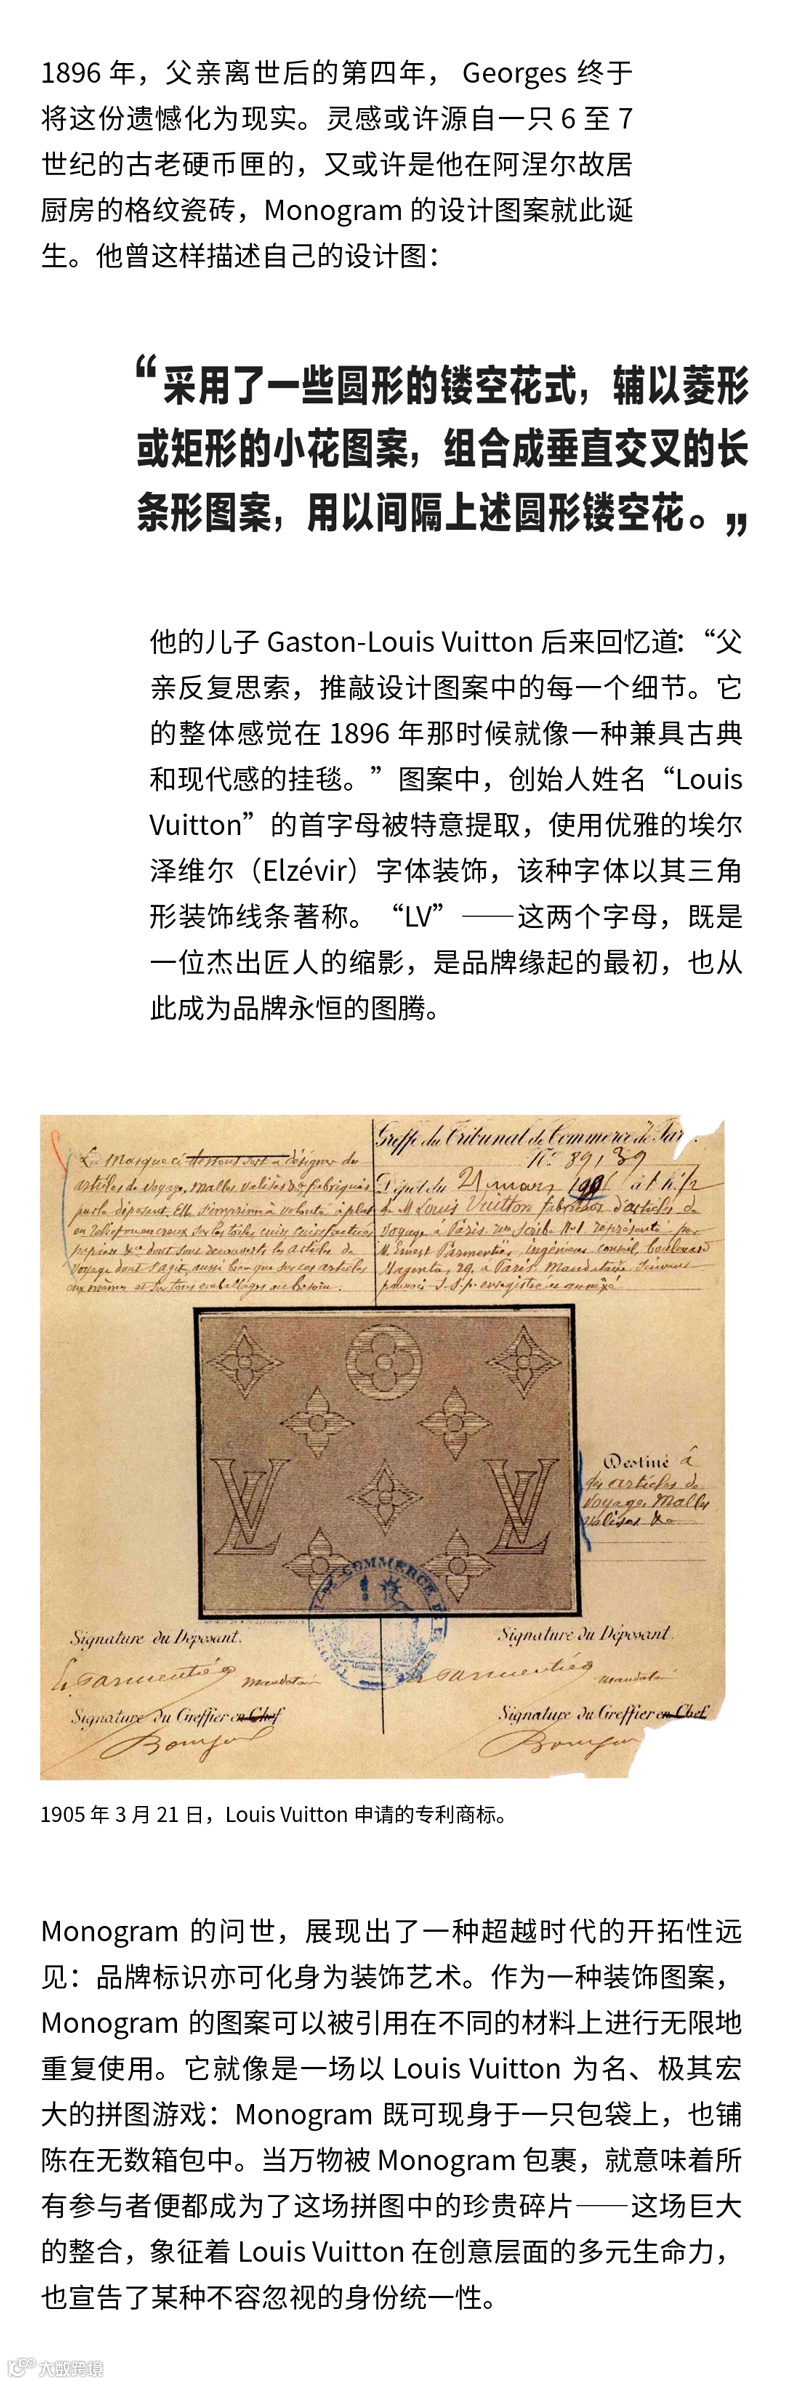 1896 年，父亲离世后的第四年， Georges 终于
将这份遗憾化为现实。灵感或许源自一只 6 至 7
世纪的古老硬币匣的，又或许是他在阿涅尔故居
厨房的格纹瓷砖，Monogram 的设计图案就此诞
生。他曾这样描述自己的设计图：
“采用了一些圆形的镂空花式，辅以菱形
或矩形的小花图案，组合成垂直交叉的长
条形图案，用以间隔上述圆形镂空花。”
他的儿子 Gaston-Louis Vuitton 后来回忆道：“父
亲反复思索，推敲设计图案中的每一个细节。它
的整体感觉在 1896 年那时候就像一种兼具古典
和现代感的挂毯。”图案中，创始人姓名“Louis
Vuitton”的首字母被特意提取，使用优雅的埃尔
泽维尔（Elzévir）字体装饰，该种字体以其三角
形装饰线条著称。“LV”——这两个字母，既是
一位杰出匠人的缩影，是品牌缘起的最初，也从
此成为品牌永恒的图腾。
La Marque ci dessous sert à désigner des
articles de voyage, malles valises &a fabriqués
par le déposant. Elle s'imprime à volonté à plat
Greffe du Tribunal de Commerce de
No 89139
Dépôt du 21 mars
de M Louis Vuitton fabricant d'articles de
voyage à Paris, rue Scribe No 1 représenté par
M. Ernest Parmentier, ingénieur conseil, boulevard
Magenta, 29, à Paris. Mandataire
LV
LV
Destiné à
des articles de
voyage, Malles
valises &a
COMMERCE
Signature du Déposant.
Signature du Déposant.
mandataire
mandataire
Signature du Greffier en Chef
Signature du Greffier en Chef
1905 年 3 月 21 日，Louis Vuitton 申请的专利商标。
Monogram 的问世，展现出了一种超越时代的开拓性远
见：品牌标识亦可化身为装饰艺术。作为一种装饰图案，
Monogram 的图案可以被引用在不同的材料上进行无限地
重复使用。它就像是一场以 Louis Vuitton 为名、极其宏
大的拼图游戏：Monogram 既可现身于一只包袋上，也铺
陈在无数箱包中。当万物被 Monogram 包裹，就意味着所
有参与者便都成为了这场拼图中的珍贵碎片——这场巨大
的整合，象征着 Louis Vuitton 在创意层面的多元生命力，
也宣告了某种不容忽视的身份统一性。
大数跨境